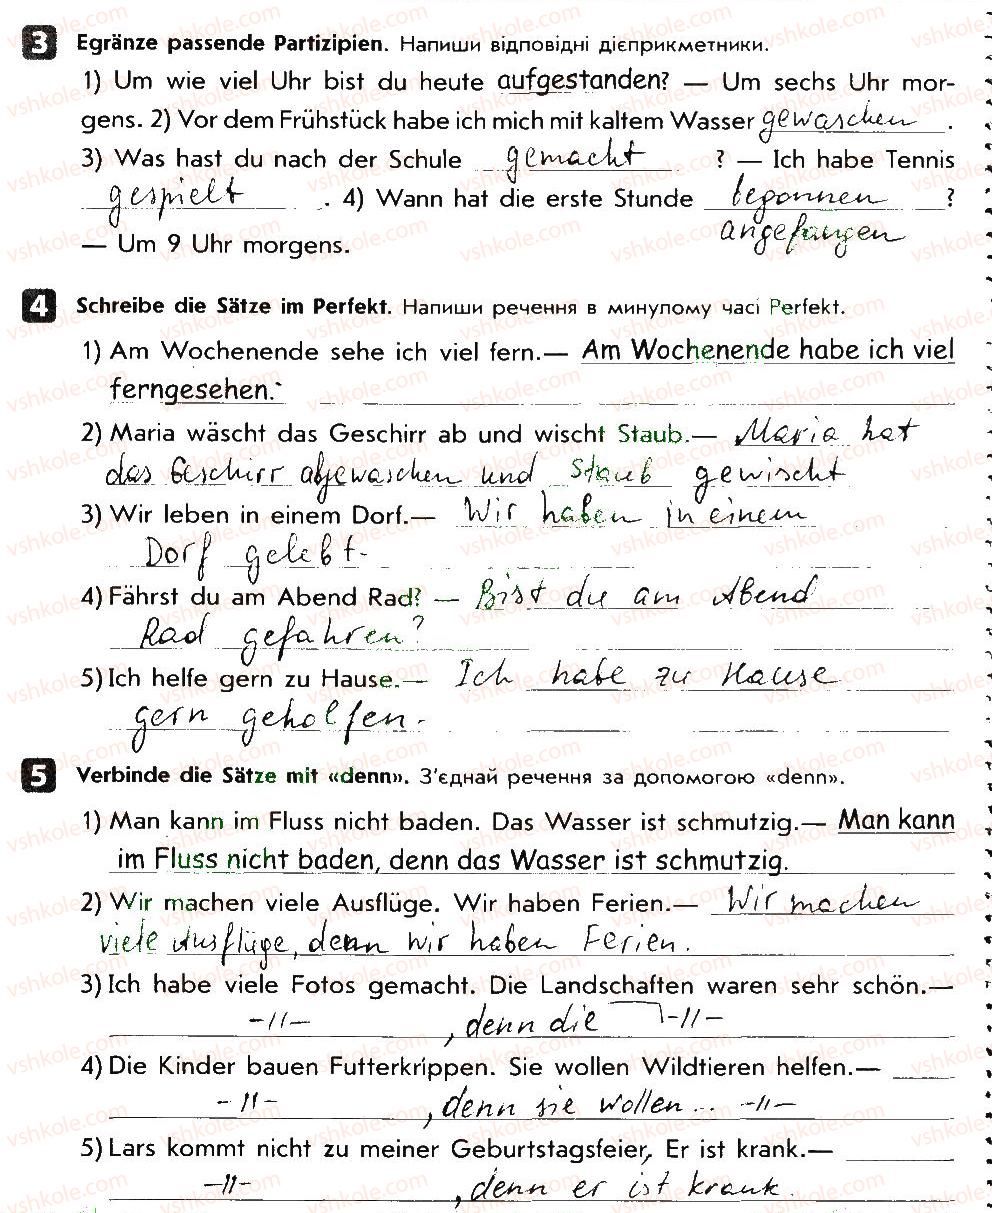 3 Egränze passende Partizipien. Напиши відповідні дієприкметники.
1) Um wie viel Uhr bist du heute aufgestanden? — Um sechs Uhr mor-
gens. 2) Vor dem Frühstück habe ich mich mit kaltem Wasser gewaschen.
3) Was hast du nach der Schule gemacht ? — Ich habe Tennis
gespielt . 4) Wann hat die erste Stunde begonnen ?
angefangen
— Um 9 Uhr morgens.
4 Schreibe die Sätze im Perfekt. Напиши речення в минулому часі Perfekt.
1) Am Wochenende sehe ich viel fern.— Am Wochenende habe ich viel
ferngesehen.
2) Maria wäscht das Geschirr ab und wischt Staub.— Maria hat
das Geschirr abgewaschen und Staub gewischt
3) Wir leben in einem Dorf.— Wir haben in einem
Dorf gelebt.
4) Fährst du am Abend Rad? — Bist du am Abend
Rad gefahren?
5) Ich helfe gern zu Hause.— Ich habe zu Hause
gern geholfen.
5 Verbinde die Sätze mit «denn». З'єднай речення за допомогою «denn».
1) Man kann im Fluss nicht baden. Das Wasser ist schmutzig.— Man kann
im Fluss nicht baden, denn das Wasser ist schmutzig.
2) Wir machen viele Ausflüge. Wir haben Ferien.— Wir machen
viele Ausflüge, denn wir haben Ferien.
3) Ich habe viele Fotos gemacht. Die Landschaften waren sehr schön.—
-//- , denn die -//-
4) Die Kinder bauen Futterkrippen. Sie wollen Wildtieren helfen.—
-//- , denn sie wollen... -//-
5) Lars kommt nicht zu meiner Geburtstagsfeier, Er ist krank.—
-//- , denn er ist krank.